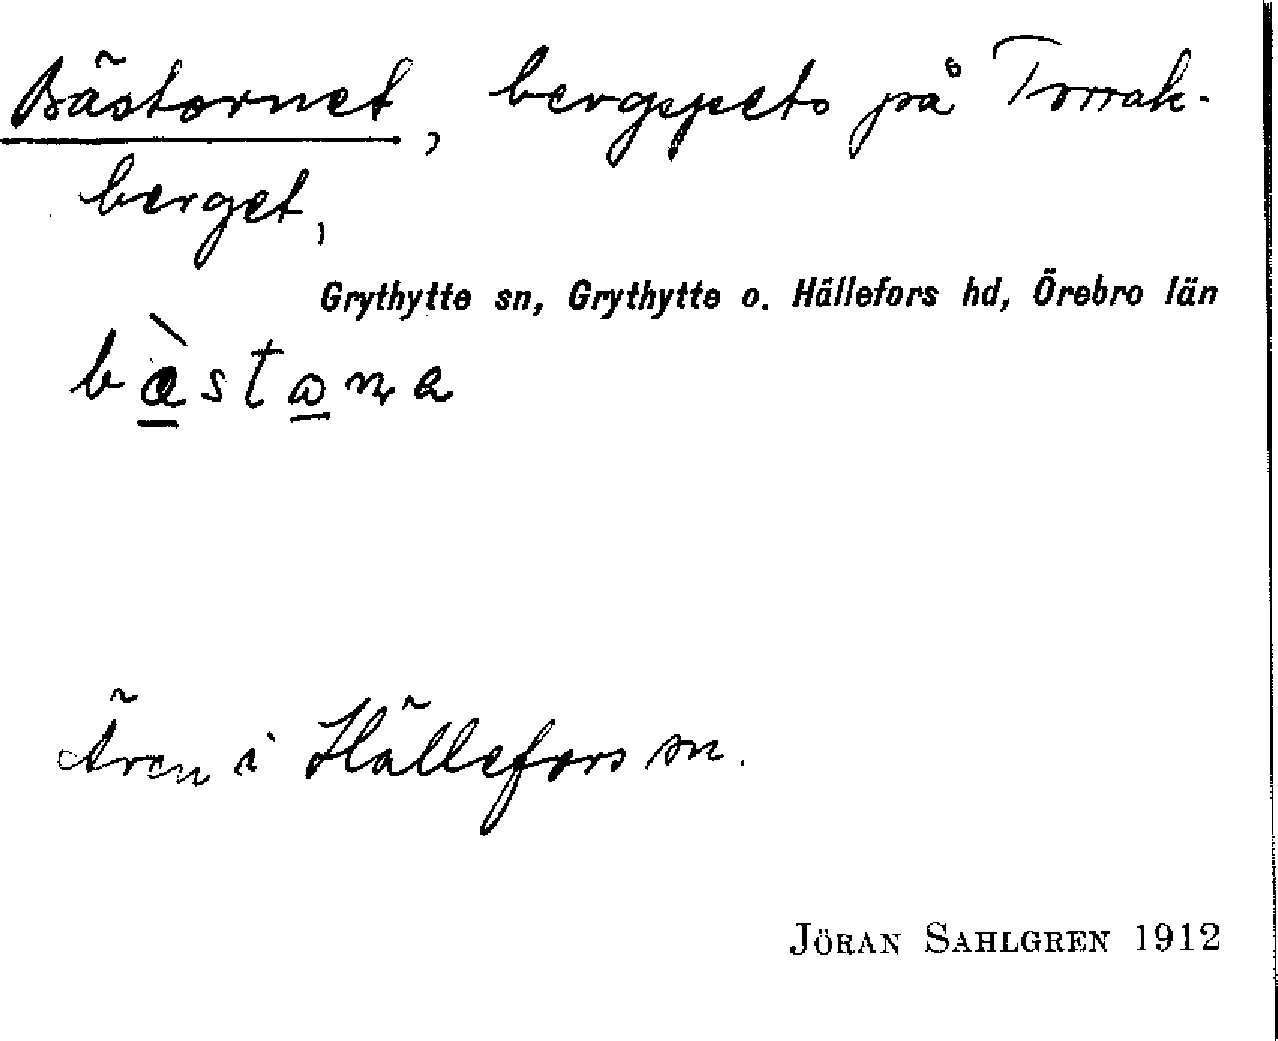 Bästornet, bergspets på Torrak-
berget,
Grythytte sn, Grythytte o. Hällefors hd, Örebro län
Ären i Hällefors sn.
JÖRAN SAHLGREN 1912